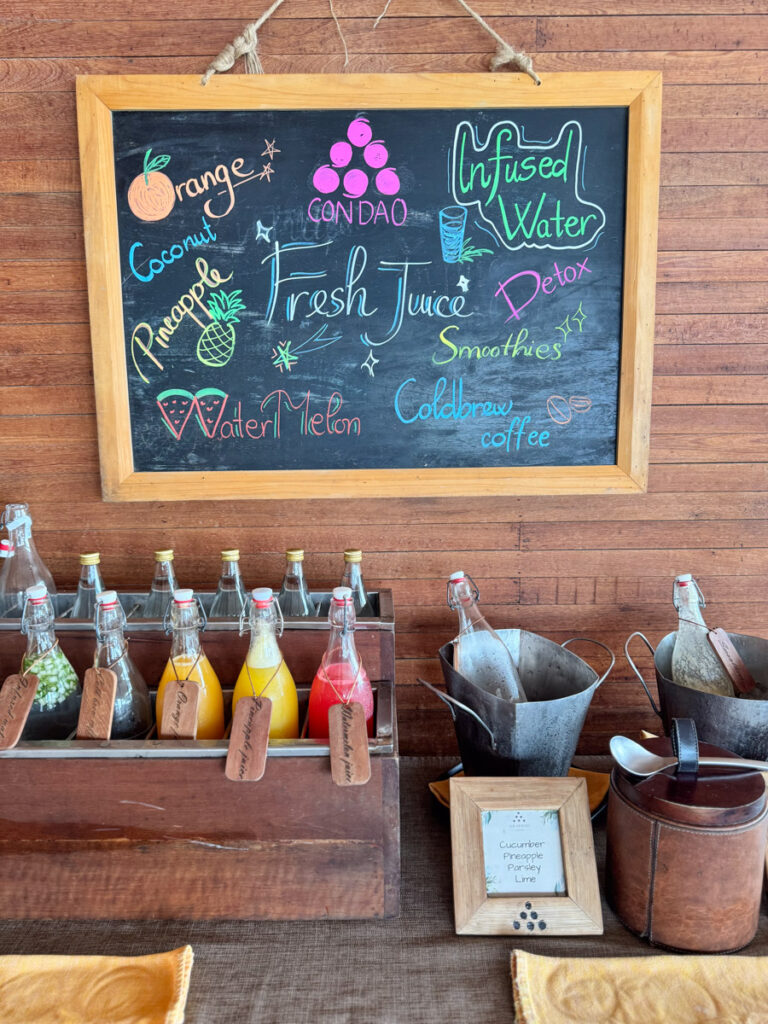 Orange
CONDAO
Infused
Water
Coconut
Fresh Juice
Detox
Pineapple
Smoothies
WaterMelon
Coldbrew
coffee
Orange
Pineapple juice
Watermelon juice
Cucumber
Pineapple
Parsley
Lime